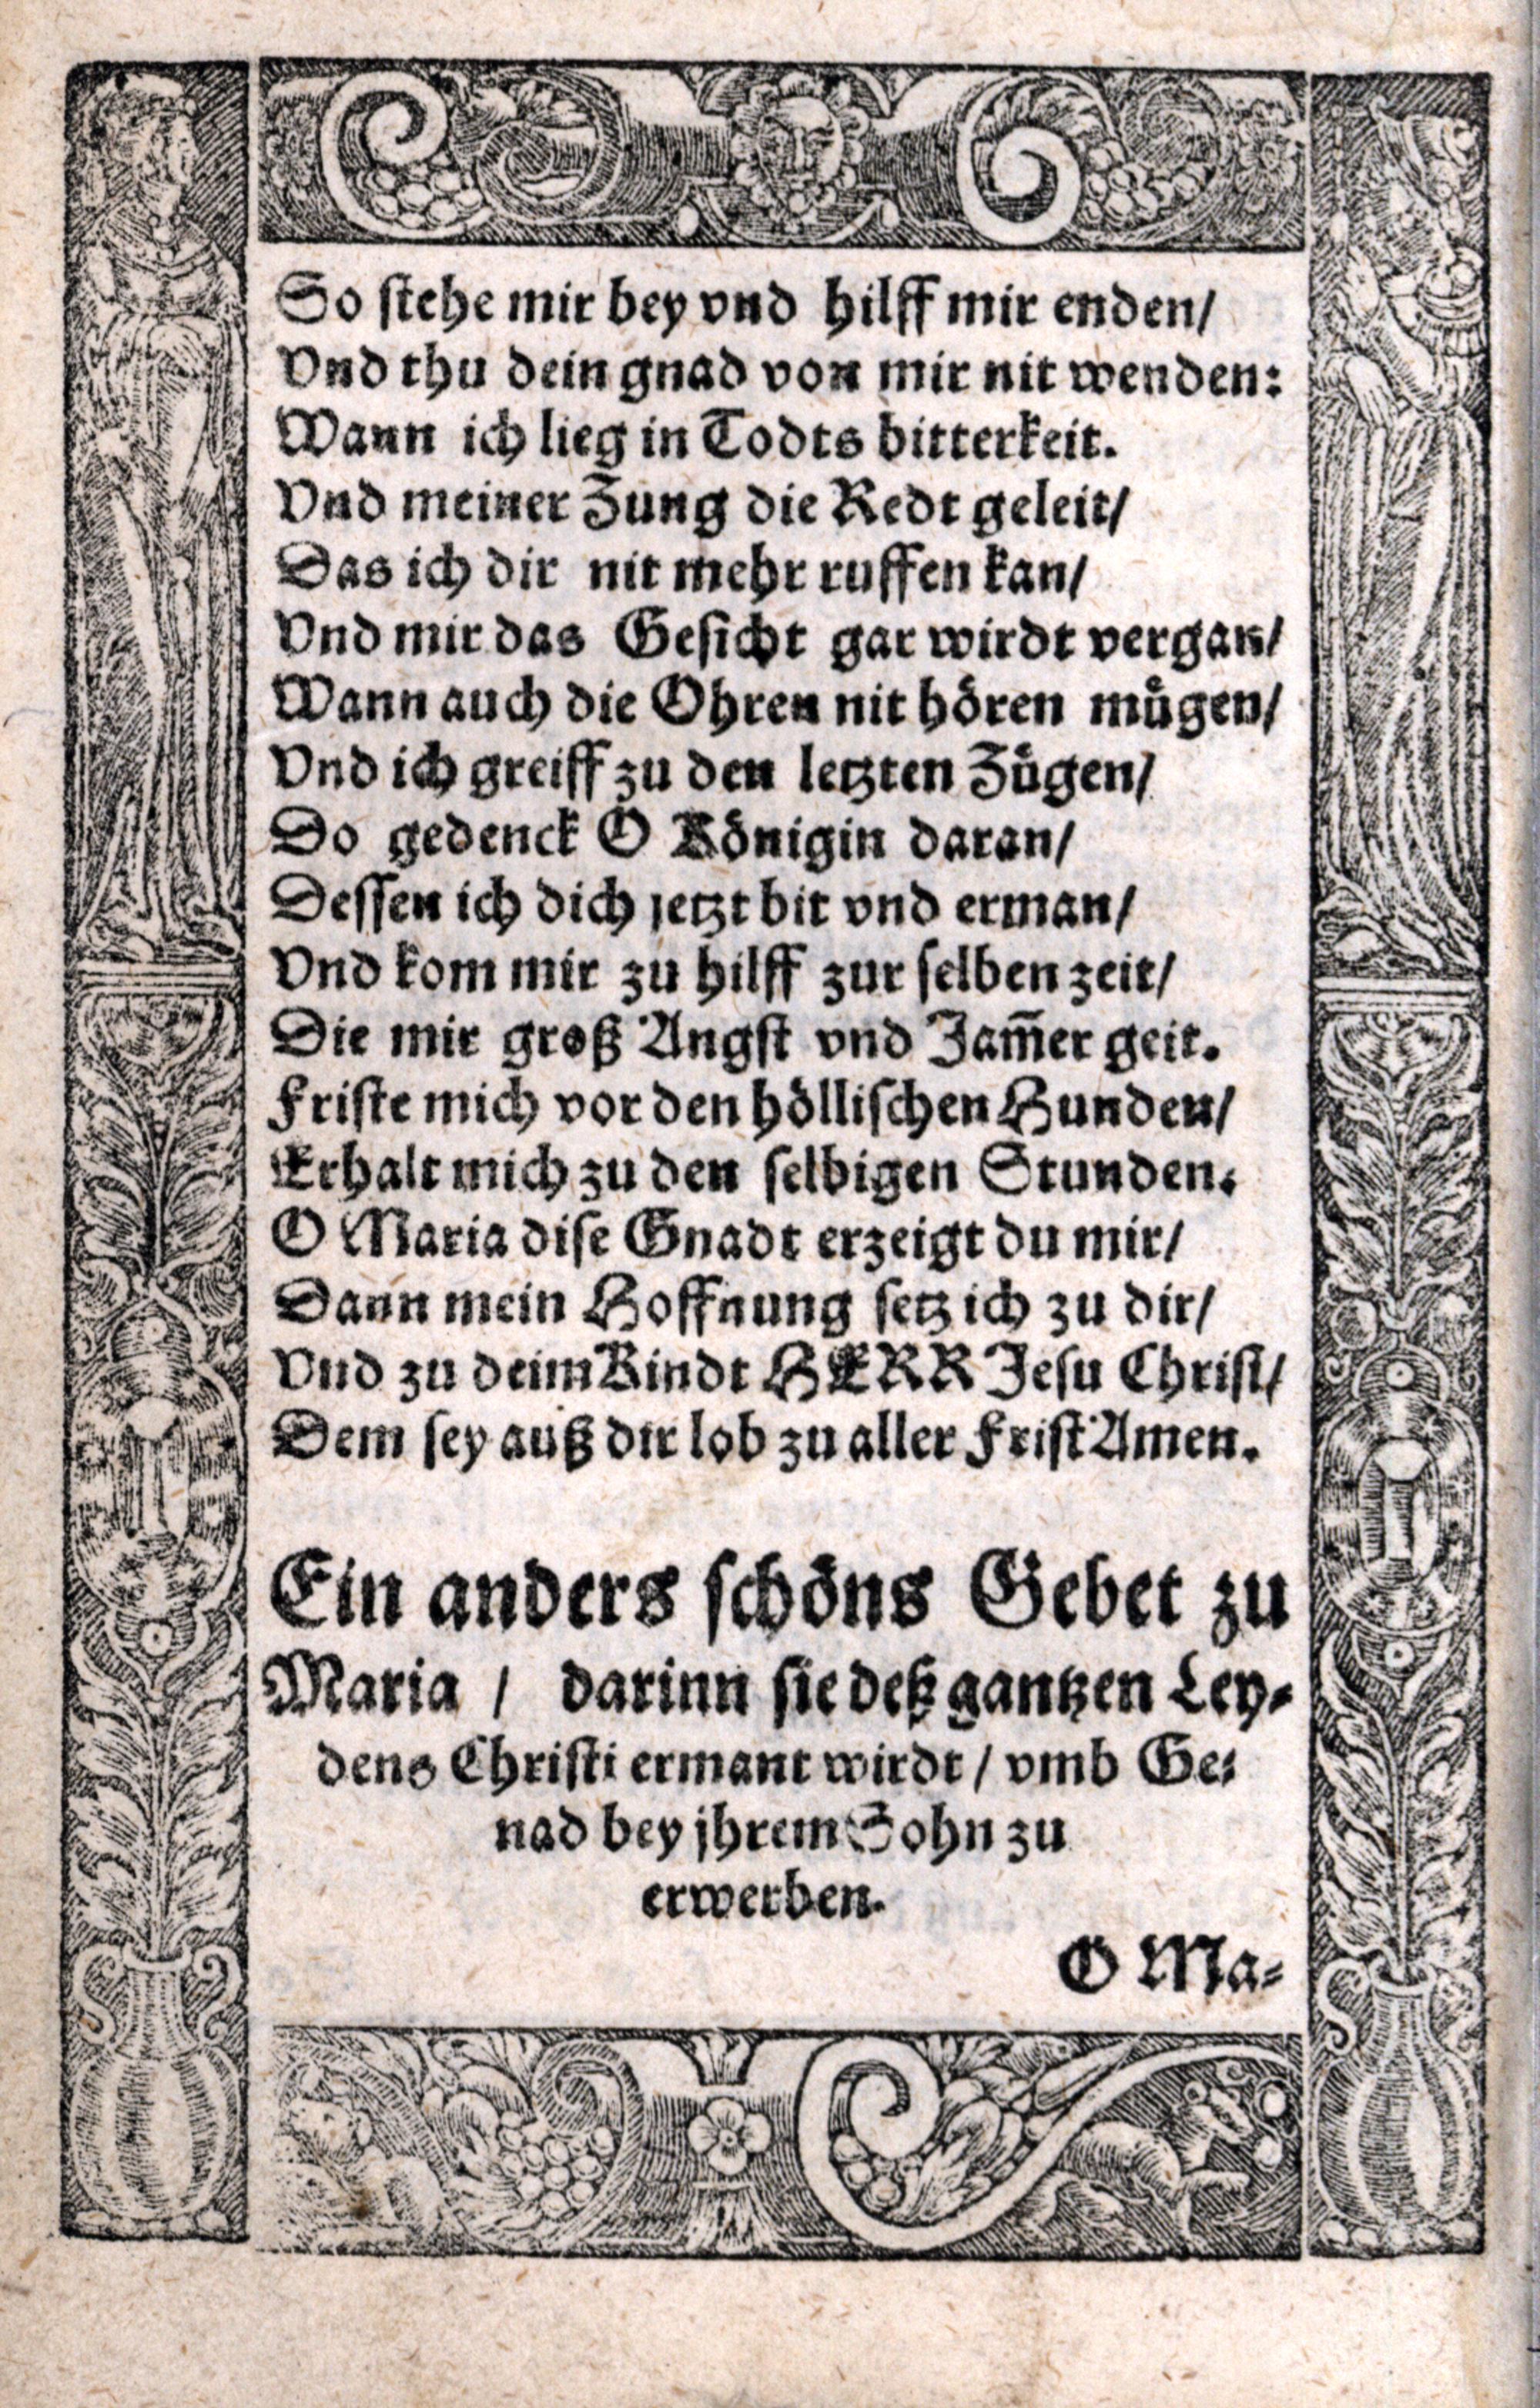 So stehe mir bey vnd hilff mir enden/
Vnd thu dein gnad von mir nit wenden:
Wann ich lieg in Todts bitterkeit.
Vnd meiner Zung die Redt geleit/
Das ich dir nit mehr ruffen kan/
Vnd mir das Gesicht gar wirdt vergan/
Wann auch die Ohren nit hören mügen/
Vnd ich greiff zu den letzten Zügen/
Do gedenck O Königin daran/
Dessen ich dich jetzt bit vnd erman/
Vnd kom mir zu hilff zur selben zeit/
Die mir groß Angst vnd Jam̅er geit.
Friste mich vor den höllischen Hunden/
Erhalt mich zu den selbigen Stunden.
O Maria dise Gnadt erzeigt du mir/
Dann mein Hoffnung setz ich zu dir/
Vnd zu deim Kindt HERR Jesu Christ/
Dem sey auß dir lob zu aller Frist Amen.
Ein anders schöns Gebet zu
Maria / darinn sie deß gantzen Ley-
dens Christi ermant wirdt / vmb Ge-
nad bey jhrem Sohn zu
erwerben.
O Ma-